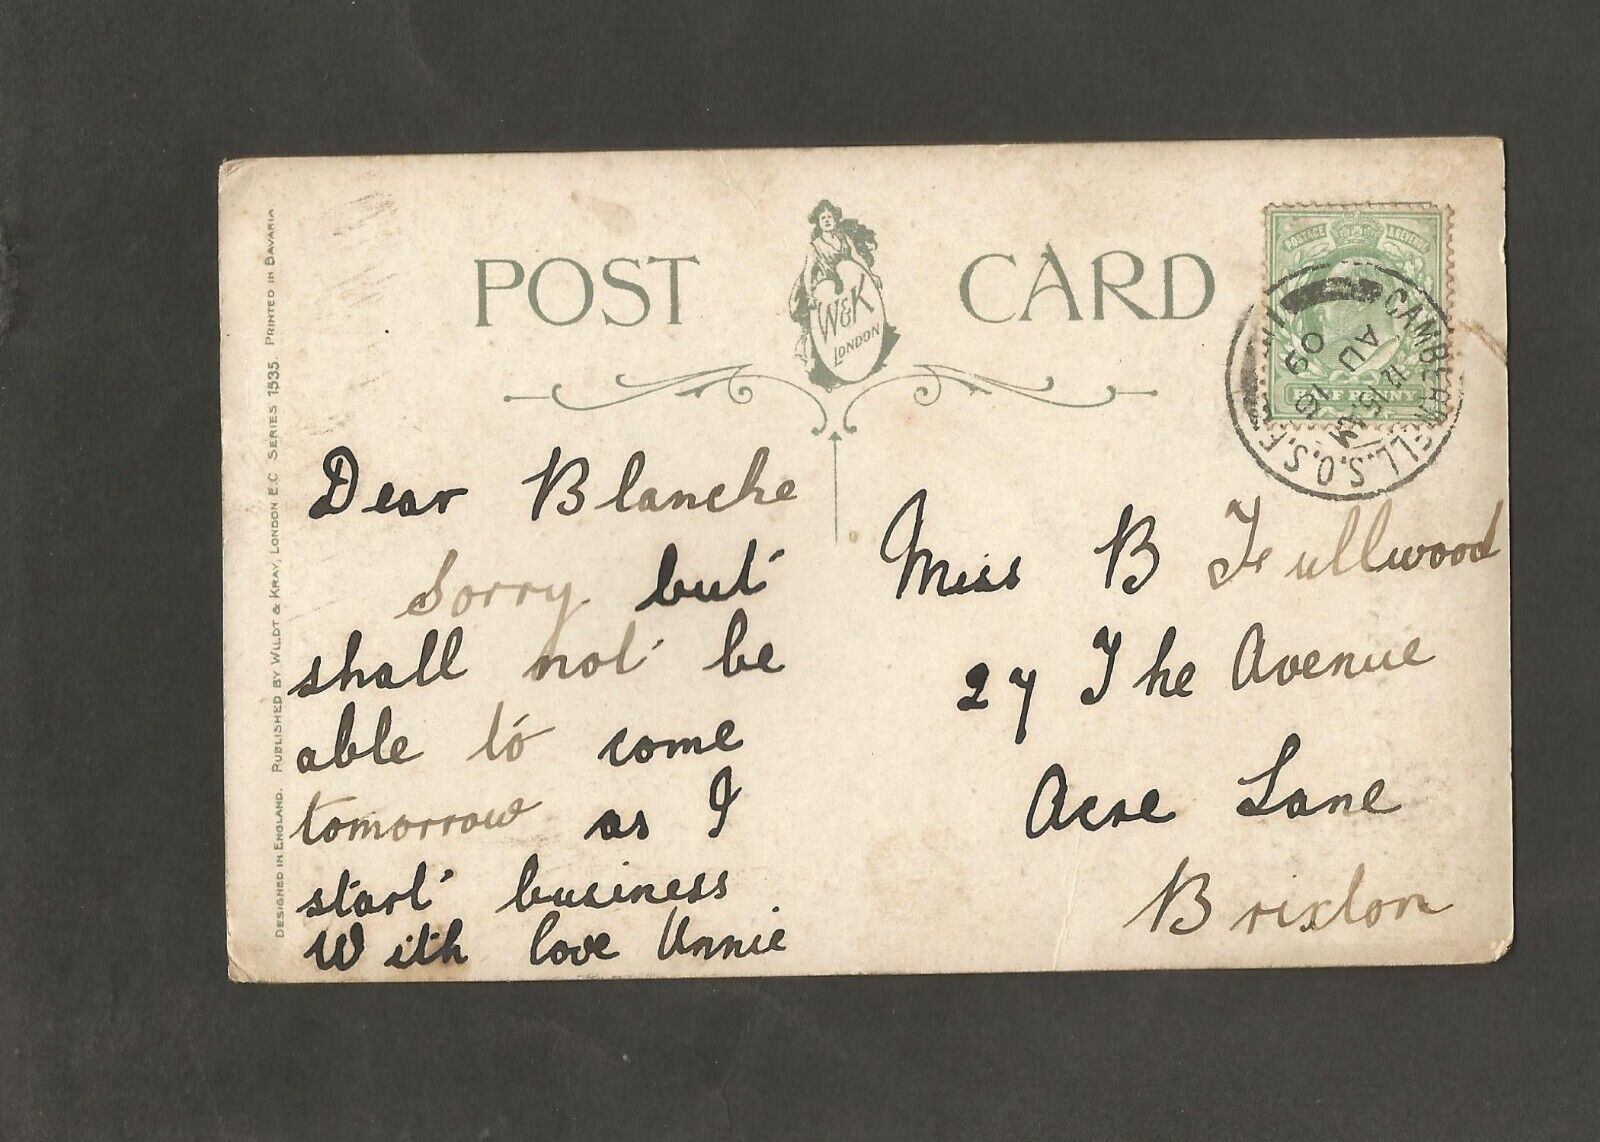 POST CARD
W&K
LONDON
POSTAGE & REVENUE
HALF PENNY
CAMBERWELL.S.O.S.E
12.15 AM
AU 16
09
DESIGNED IN ENGLAND. PUBLISHED BY WILDT & KRAY, LONDON E.C SERIES 1535. PRINTED IN BAVARIA
Dear Blanche
Sorry but
shall not be
able to come
tomorrow as I
start business
With love Annie
Miss B Fullwood
27 The Avenue
Acre Lane
Brixton